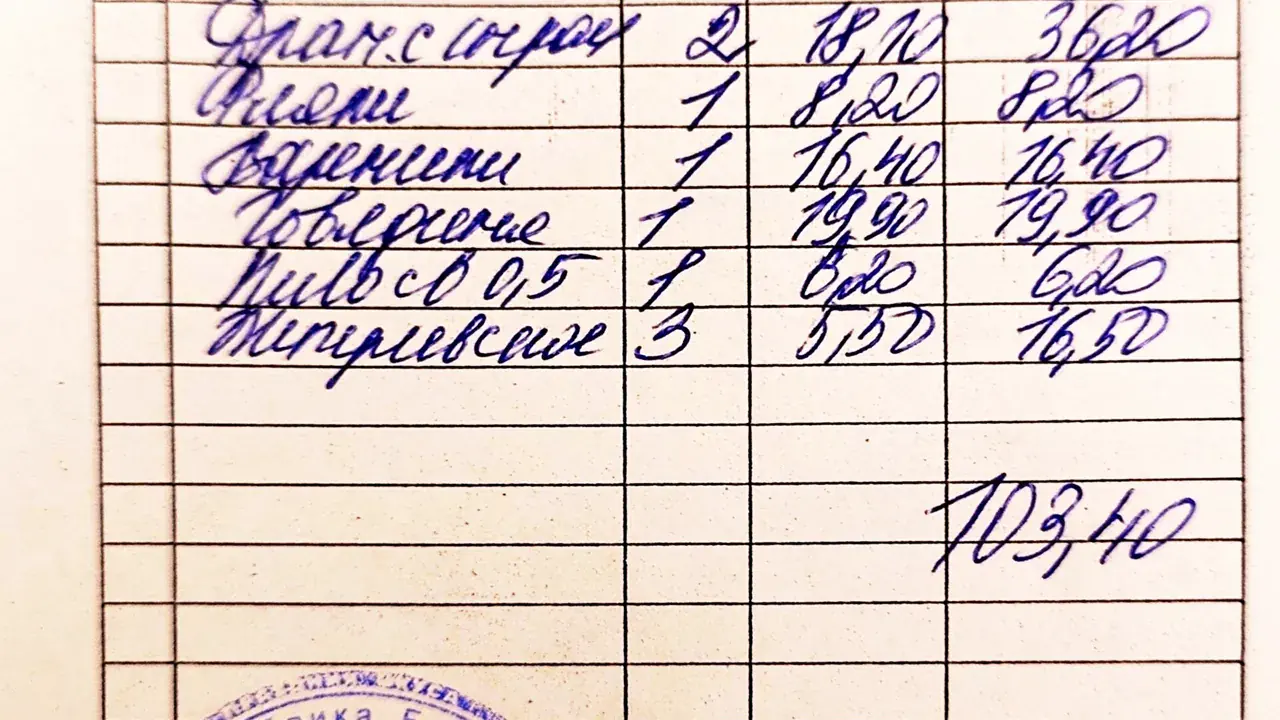 Дран. с сыром 2 18,10 36,20
Фляки 1 8,20 8,20
Вареники 1 16,40 16,40
Говядина 1 19,90 19,90
Пиво св 0,5 1 6,20 6,20
Жигулевское 3 5,50 16,50
103,40